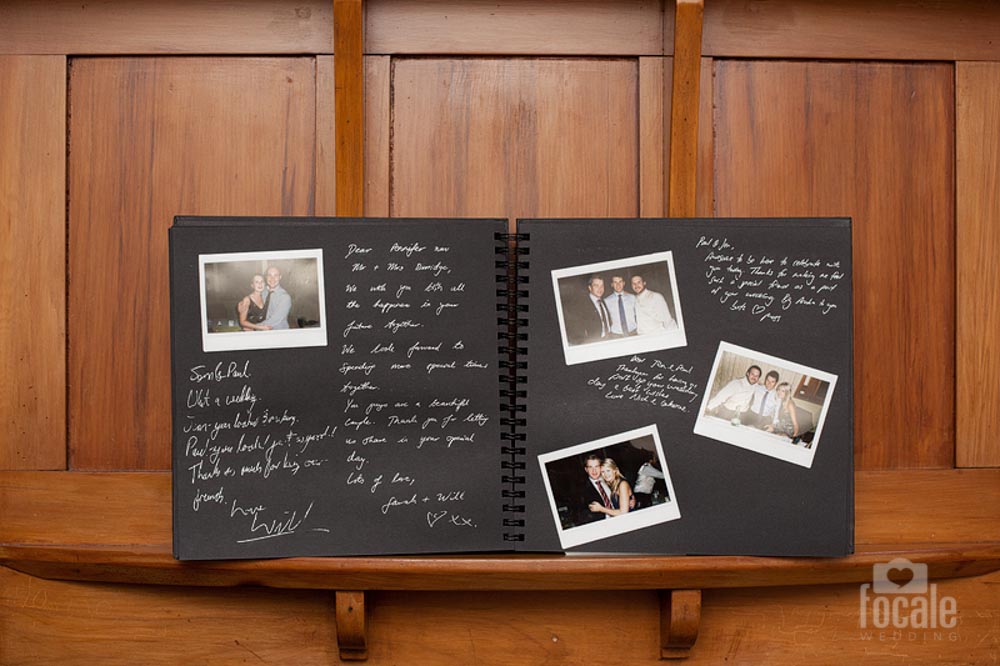 Jen & Paul.
What a wedding.
Jen - you looked
Paul - you looked just as good!!
Thanks so much for being our
friends.
Love
Will!
Dear Jennifer now
Mr + Mrs
We wish you both all
the happiness in your
future together.
We look forward to
spending more special times
together.
You guys are a beautiful
couple. Thank you for letting
us share in your special
day.
Lots of love,
Sarah + Will
♡ xx.
Paul & Jen,
Awesome to be here to celebrate with
you today. Thanks for making me feel
such a special honour as a part
of your wedding. to you
both ♡
Dear Jen & Paul
Thankyou for having
us at your wedding
day & best wishes
Love Nick &
focale
WEDDING